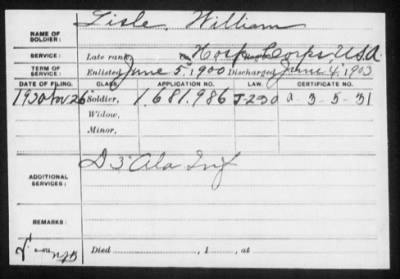 NAME OF SOLDIER: Lisle, William
SERVICE: Late rank, Hosp Corps, U.S.A.
TERM OF SERVICE: Enlisted June 5, 1900 Discharged June 4, 1903
DATE OF FILING. CLASS. APPLICATION NO. LAW. CERTIFICATE NO.
1920 Nov 26 Soldier, 1,681,986 J-230 a-3-5-31
Widow,
Minor,
ADDITIONAL SERVICES: D 3" Ala Inf
REMARKS:
Died , 1 , at